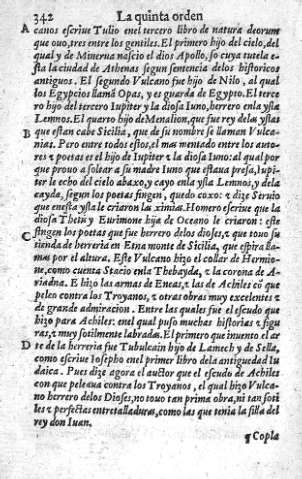 342 La quinta orden
A canos escriue Tulio enel tercero libro de natura deorum
que ouo, tres entre los gentiles. El primero hijo del cielo, del
qual y de Minerua nascio el dios Apollo, so cuya tutela e-
sta la ciudad de Athenas segun sentencia delos historicos
antiguos. El segundo Vulcano fue hijo de Nilo, al qual
los Egypcios llamã Opas, y es guarda de Egypto. El terce
ro hijo del tercero Iupiter y la diosa Iuno, herrero enla ysla
Lemnos. El quarto hijo de Menalion, que fue rey delas yslas
B que estan cabe Sicilia, que de su nombre se llaman Vulca-
nias. Pero entre todos estos, el mas mentado entre los auto-
res z poetas es el hijo de Iupiter z la diosa Iuno: al qual por
que prouo a soltar a su madre Iuno que estaua presa, Iupi-
ter le echo del cielo abaxo, y cayo enla ysla Lemnos, y dela
cayda, segun los poetas fingen, quedo coxo: z dize Seruio
que enesta ysla le criaron las ximias. Homero escriue que la
diosa Thetis y Eurimone hija de Oceano le criaron: este
C fingen los poetas que fue herrero delos dioses, z que touo su
tienda de herreria en Etna monte de Sicilia, que espira lla-
mas por el altura. Este Vulcano hizo el collar de Hermio-
ne, como cuenta Stacio enla Thebayda, z la corona de A-
riadna. E hizo las armas de Eneas, z las de Achiles cõ que
peleo contra los Troyanos, z otras obras muy excelentes z
de grande admiracion. Entre las quales fue el escudo que
hizo para Achiles: enel qual puso muchas historias z figu
ras, z muy sotilmente labradas. El primero que inuento el ar
D te de la herreria fue Tubulcain hijo de Lamech y de Sella,
como escriue Iosepho enel primer libro dela antiguedad Iu
daica. Pues dize agora el auctor que el escudo de Achiles
con que peleaua contra los Troyanos, el qual hizo Vulca-
no herrero delos Dioses, no touo tan prima obra, ni tan soti
les z perfectas entretalladuras, como las que tenia la silla del
rey don Iuan.
¶ Copla